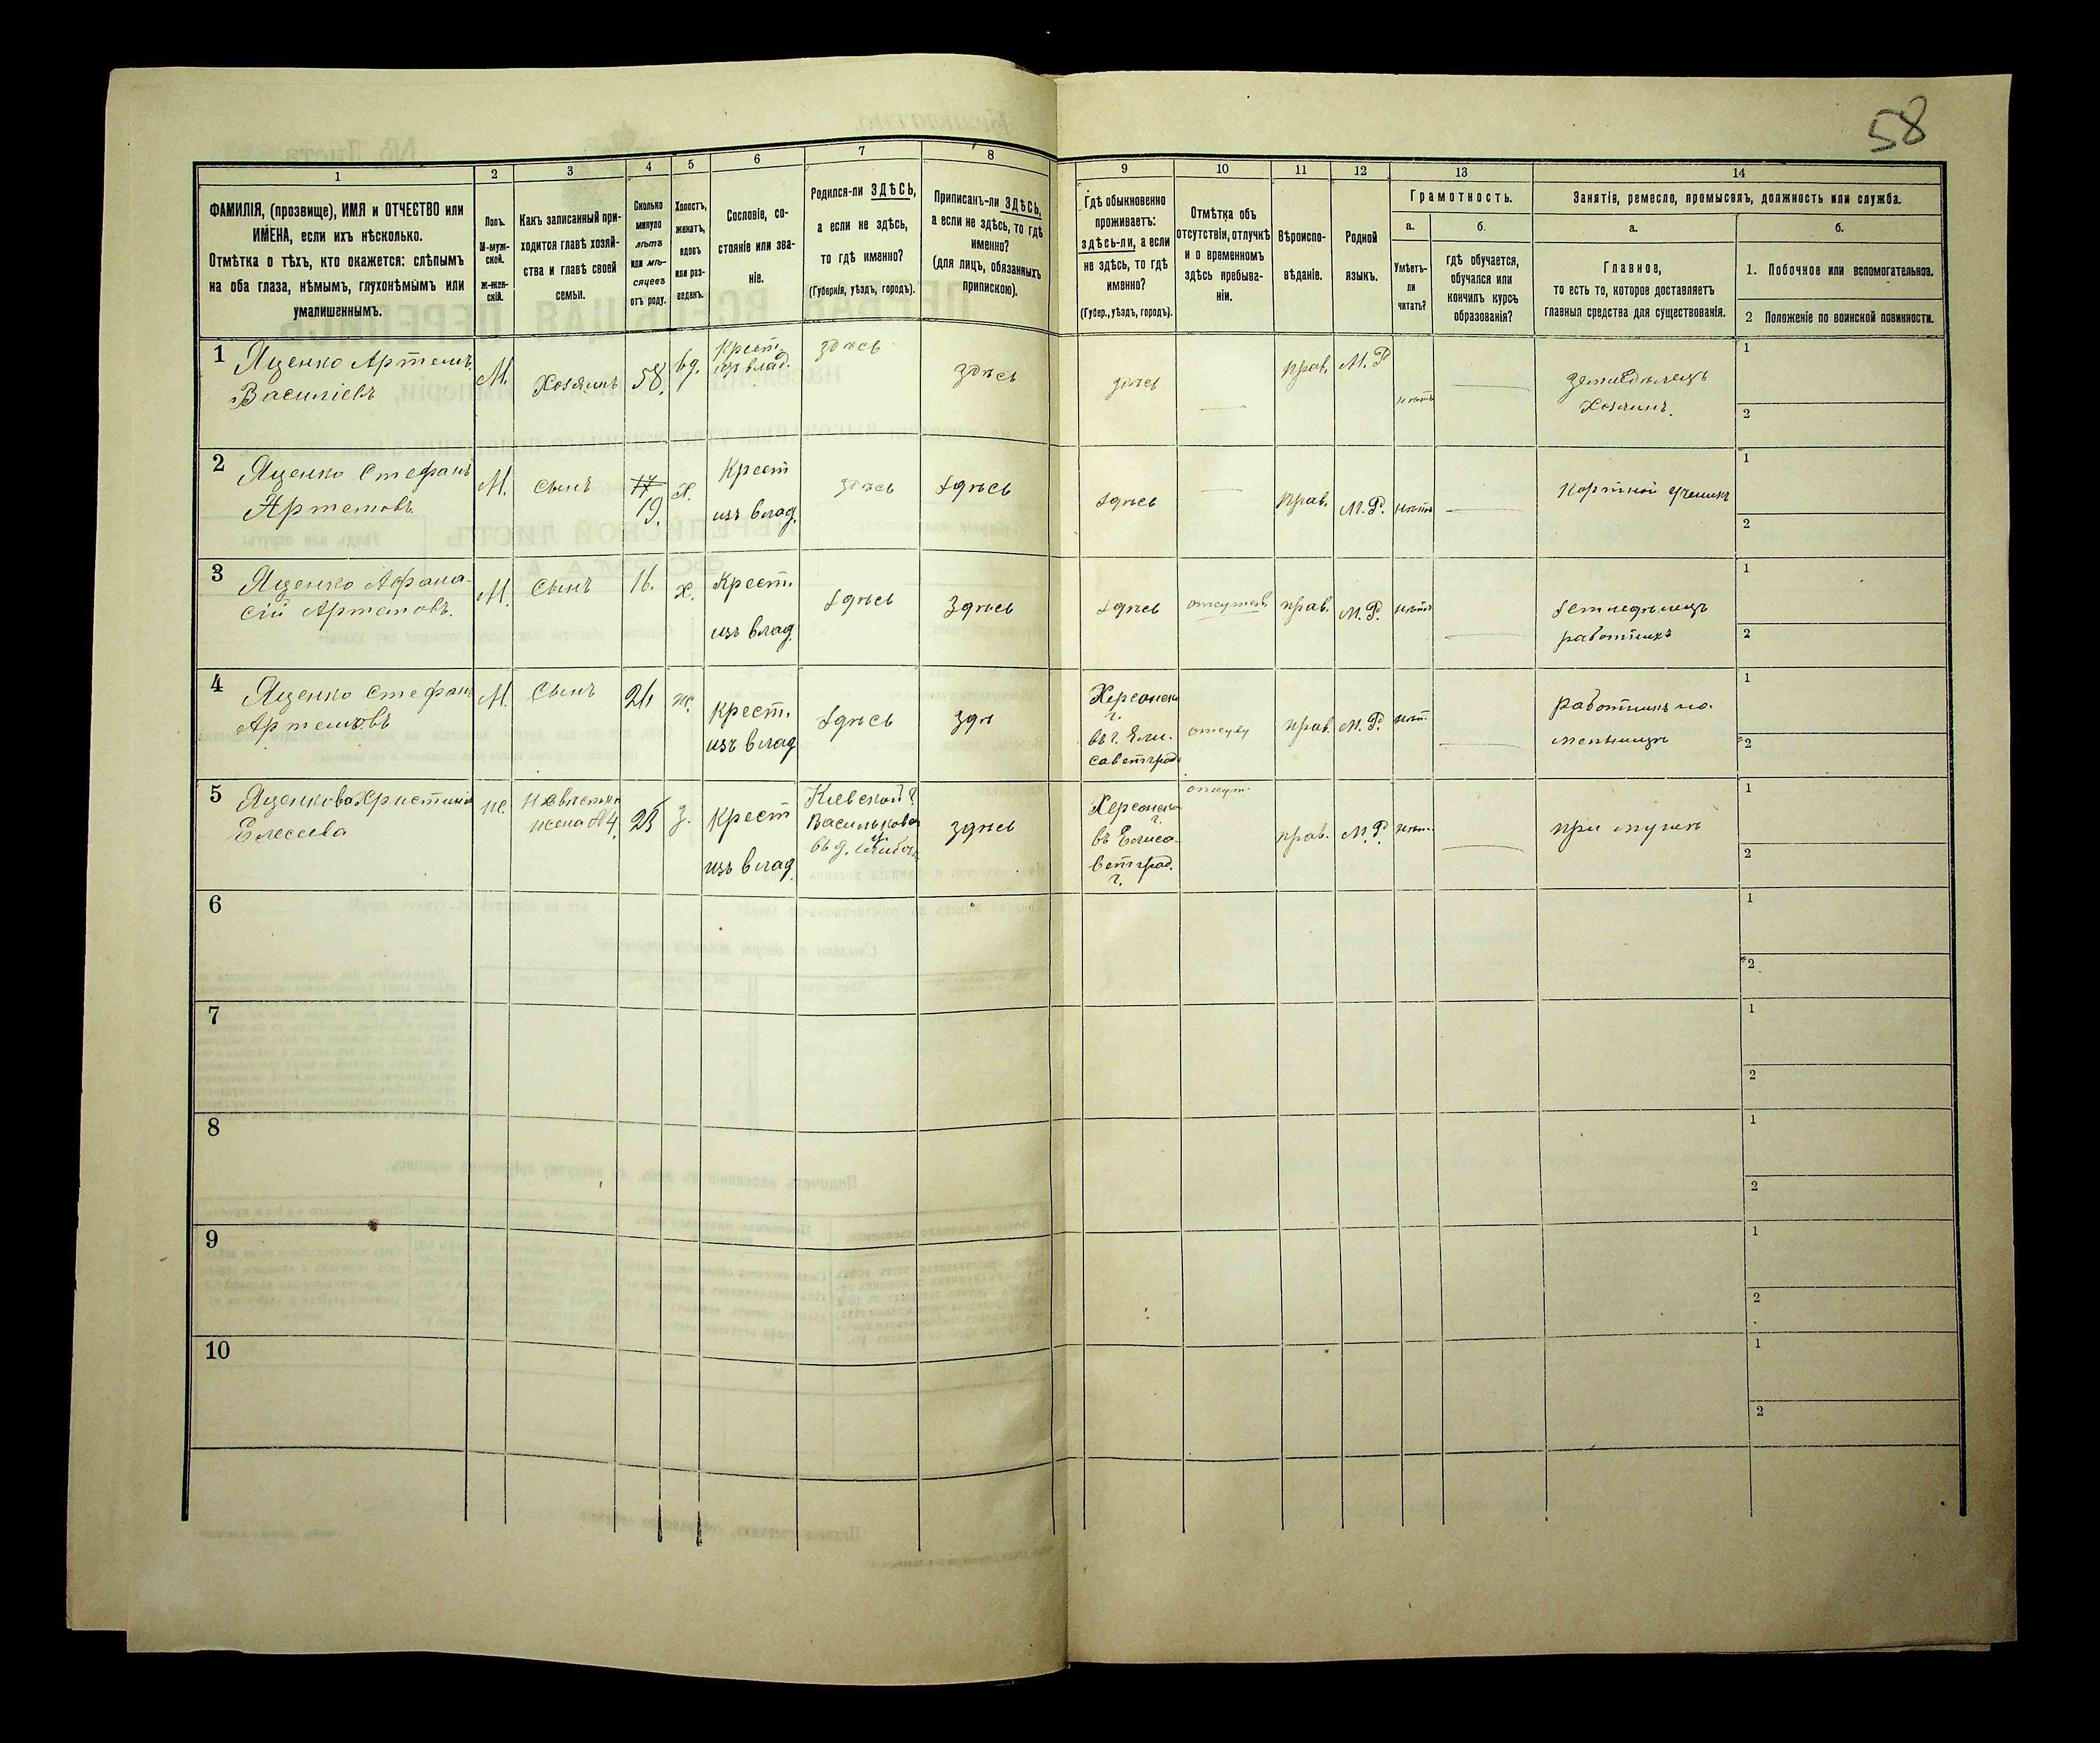 58
1
2
3
4
5
6
7
8
9
10
11
12
13
14
ФАМИЛІЯ, (прозвище), ИМЯ и ОТЧЕСТВО или
ИМЕНА, если ихъ нѣсколько.
Отмѣтка о тѣхъ, кто окажется: слѣпымъ
на оба глаза, нѣмымъ, глухонѣмымъ или
умалишеннымъ.
Полъ.
М-муж-
ской.
Ж-жен-
скій.
Какъ записанный при-
ходится главѣ хозяй-
ства и главѣ своей
семьи.
Сколько
минуло
лѣтъ
или мѣ-
сяцевъ
отъ роду.
Холостъ,
женатъ,
вдовъ
или раз-
веденъ.
Сословіе, со-
стояніе или зва-
ніе.
Родился-ли ЗДѢСЬ,
а если не здѣсь,
то гдѣ именно?
(Губернія, уѣздъ, городъ).
Приписанъ-ли ЗДѢСЬ,
а если не здѣсь, то гдѣ
именно?
(для лицъ, обязанныхъ
припискою).
Гдѣ обыкновенно
проживаетъ:
здѣсь-ли, а если
не здѣсь, то гдѣ
именно?
(Губер., уѣздъ, городъ).
Отмѣтка объ
отсутствіи, отлучкѣ
и о временномъ
здѣсь пребыва-
ніи.
Вѣроиспо-
вѣданіе.
Родной
языкъ.
Грамотность.
а.
Умѣетъ-
ли
читать?
б.
гдѣ обучается,
обучался или
кончилъ курсъ
образованія?
Занятія, ремесло, промыселъ, должность или служба.
а.
Главное,
то есть то, которое доставляетъ
главныя средства для существованія.
б.
1. Побочное или вспомогательное.
2 Положеніе по воинской повинности.
1 Яценко Артемъ
Васильевъ
М.
Хозяинъ
58.
вд.
Крест.
изъ влад.
здѣсь
здѣсь
здѣсь
прав.
М.Р.
нѣтъ
земледѣлецъ
Хозяинъ.
1
2
2 Яценко Стефанъ
Артемовъ
М.
сынъ
17
19.
х.
Крест
изъ влад.
здѣсь
здѣсь
здѣсь
прав.
М.Р.
нѣтъ
портной ученикъ
1
2
3 Яценко Афана-
сій Артемовъ.
М.
Сынъ
16.
х.
Крест.
изъ влад.
здѣсь
здѣсь
здѣсь
отсутств.
прав.
М.Р.
нѣтъ
земледѣлецъ
работникъ
1
2
4 Яценко Стефанъ
Артемовъ
М.
Сынъ
ж.
крест.
изъ влад
здѣсь
здѣ
Херсонск.
г.
въ г. Ели-
саветград
прав.
М.Р.
нѣт.
работникъ на
мельницѣ
1
2
5 Яценкова Христина
Елесеева
ж.
Невѣстка
жена №4
23
з.
крест
изъ влад.
Кіевской г
Васильковск
у.
здѣсь
Херсонск.
г.
въ Елиса-
ветград.
г.
отсут.
прав.
М.Р.
нѣт.
при мужѣ
1
2
6
1
2
7
1
2
8
1
2
9
1
2
10
1
2